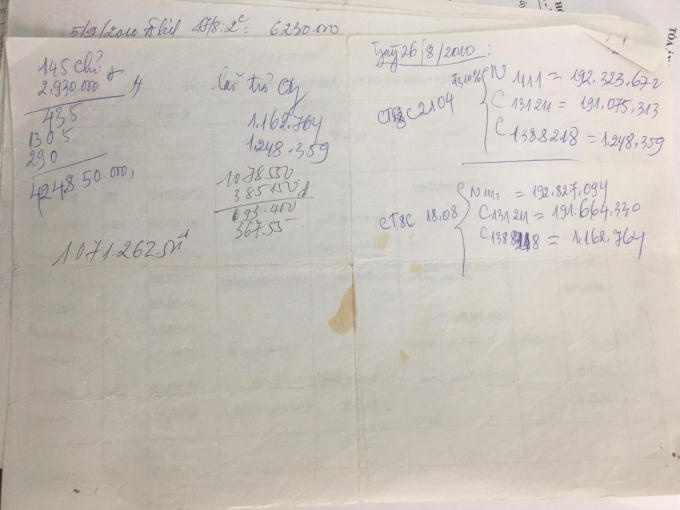 5/9/2010 2° = 6230.000
145 chỉ
2.930.000
435
1305
290
424850.000,
1071.262.5
lãi trả
1.162.764
1.248.359
1078550
385150
693.400
367.55
Ngày 26/8/2010:
CT8C2104
N 1111 = 192.323.672
C 131211 = 191.075.313
C 1388218 = 1.248.359
CT8C 18.08
N 1111 = 192.827.094
C 131211 = 191.664.330
C 138 8 = 1.162.764
TÒA